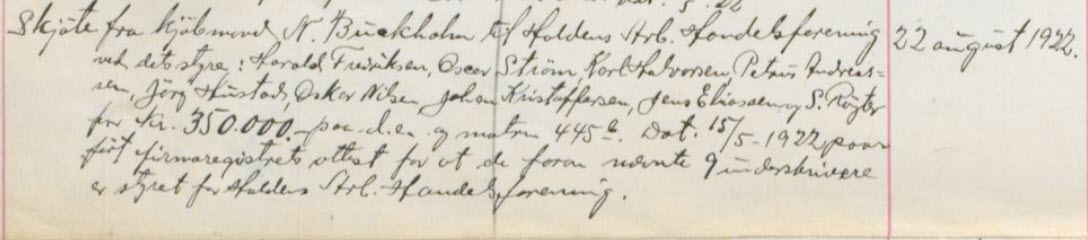 Skjöte fra kjöbmand N. Buckholm til Haldens Arb. Handelsforening 22 august 1922.
ved dets styre: Harald Fredriksen, Oscar Ström, Karl Halvorsen, Petrus Andreas-
sen, Jörg Hustad, Oskar Nilsen Johan Kristoffersen, Jens Eliassen og S. Röyter
for Kr. 350.000.- paa d. en. og matrn 445 b. Dat. 15/5-1922, paa-
fört firmaregistrets attest for at de foran nævnte 9 underskrivere
er styret for Haldens Arb. Handelsforening.